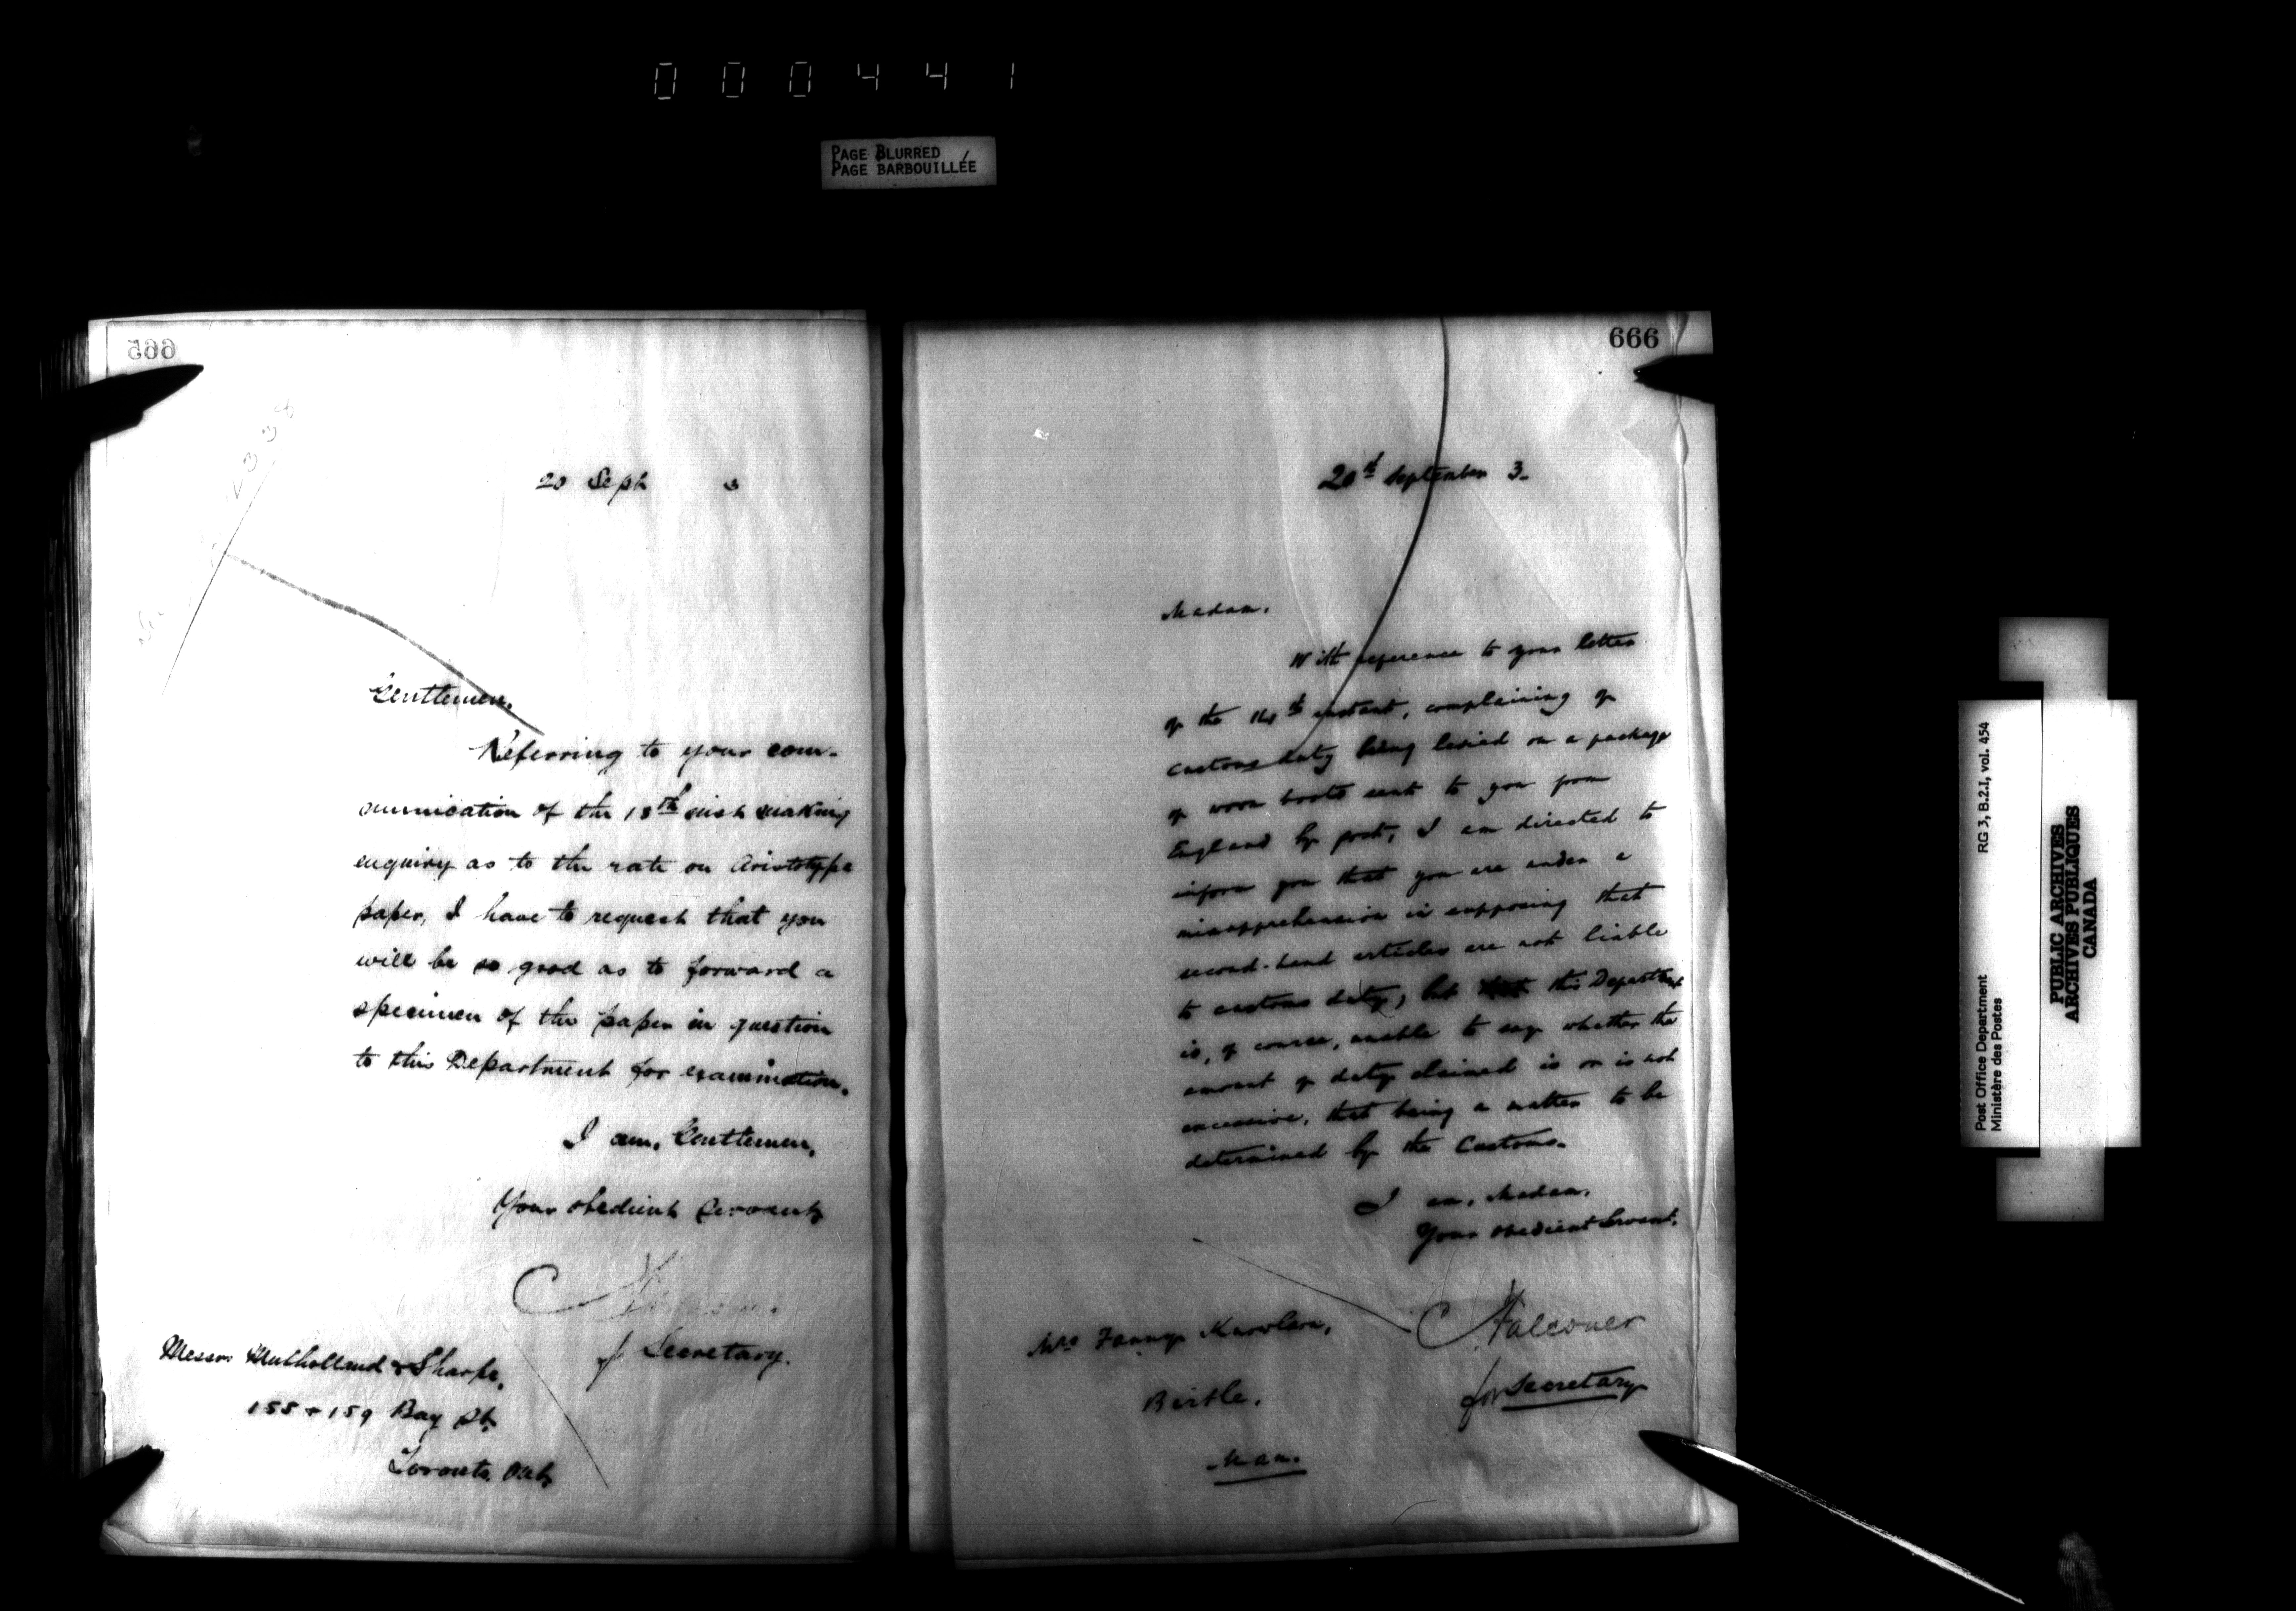 000441
PAGE BLURRED
PAGE BARBOUILLÉE
665
20 Sept 3
Gentlemen,
Referring to your com-
munication of the 18th inst making
enquiry as to the rate on Aristotype
paper, I have to request that you
will be so good as to forward a
specimen of the paper in question
to this Department for examination.
I am, Gentlemen,
Your obedient Servant,
for Secretary.
Messrs Mulholland & Sharpe,
155 & 159 Bay St.
Toronto, Ont,
666
20th September 3.
Madam,
With reference to your letter
of the 14th instant, complaining of
customs duty being levied on a package
of worn boots sent to you from
England by post, I am directed to
inform you that you are under a
misapprehension in supposing that
second-hand articles are not liable
to customs duty, but this Department
is, of course, unable to say whether the
amount of duty claimed is or is not
excessive, that being a matter to be
determined by the Customs.
I am, Madam,
Your obedient Servant,
Falconer
for Secretary
Mrs Fanny
Birtle,
Man.
Post Office Department RG 3, B.2.I, vol. 454
Ministère des Postes
PUBLIC ARCHIVES
ARCHIVES PUBLIQUES
CANADA